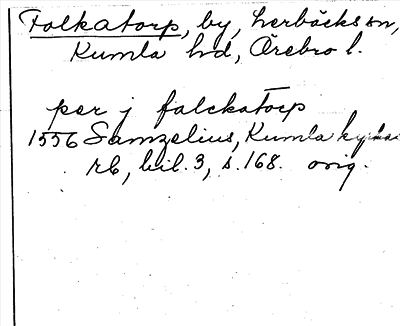 Folkatorp, by, Lerbäcks sn,
Kumla hd, Örebro l.
per j falckatorp
1556 Samzelius, Kumla kyrkas
rb, bil. 3, s. 168. orig.